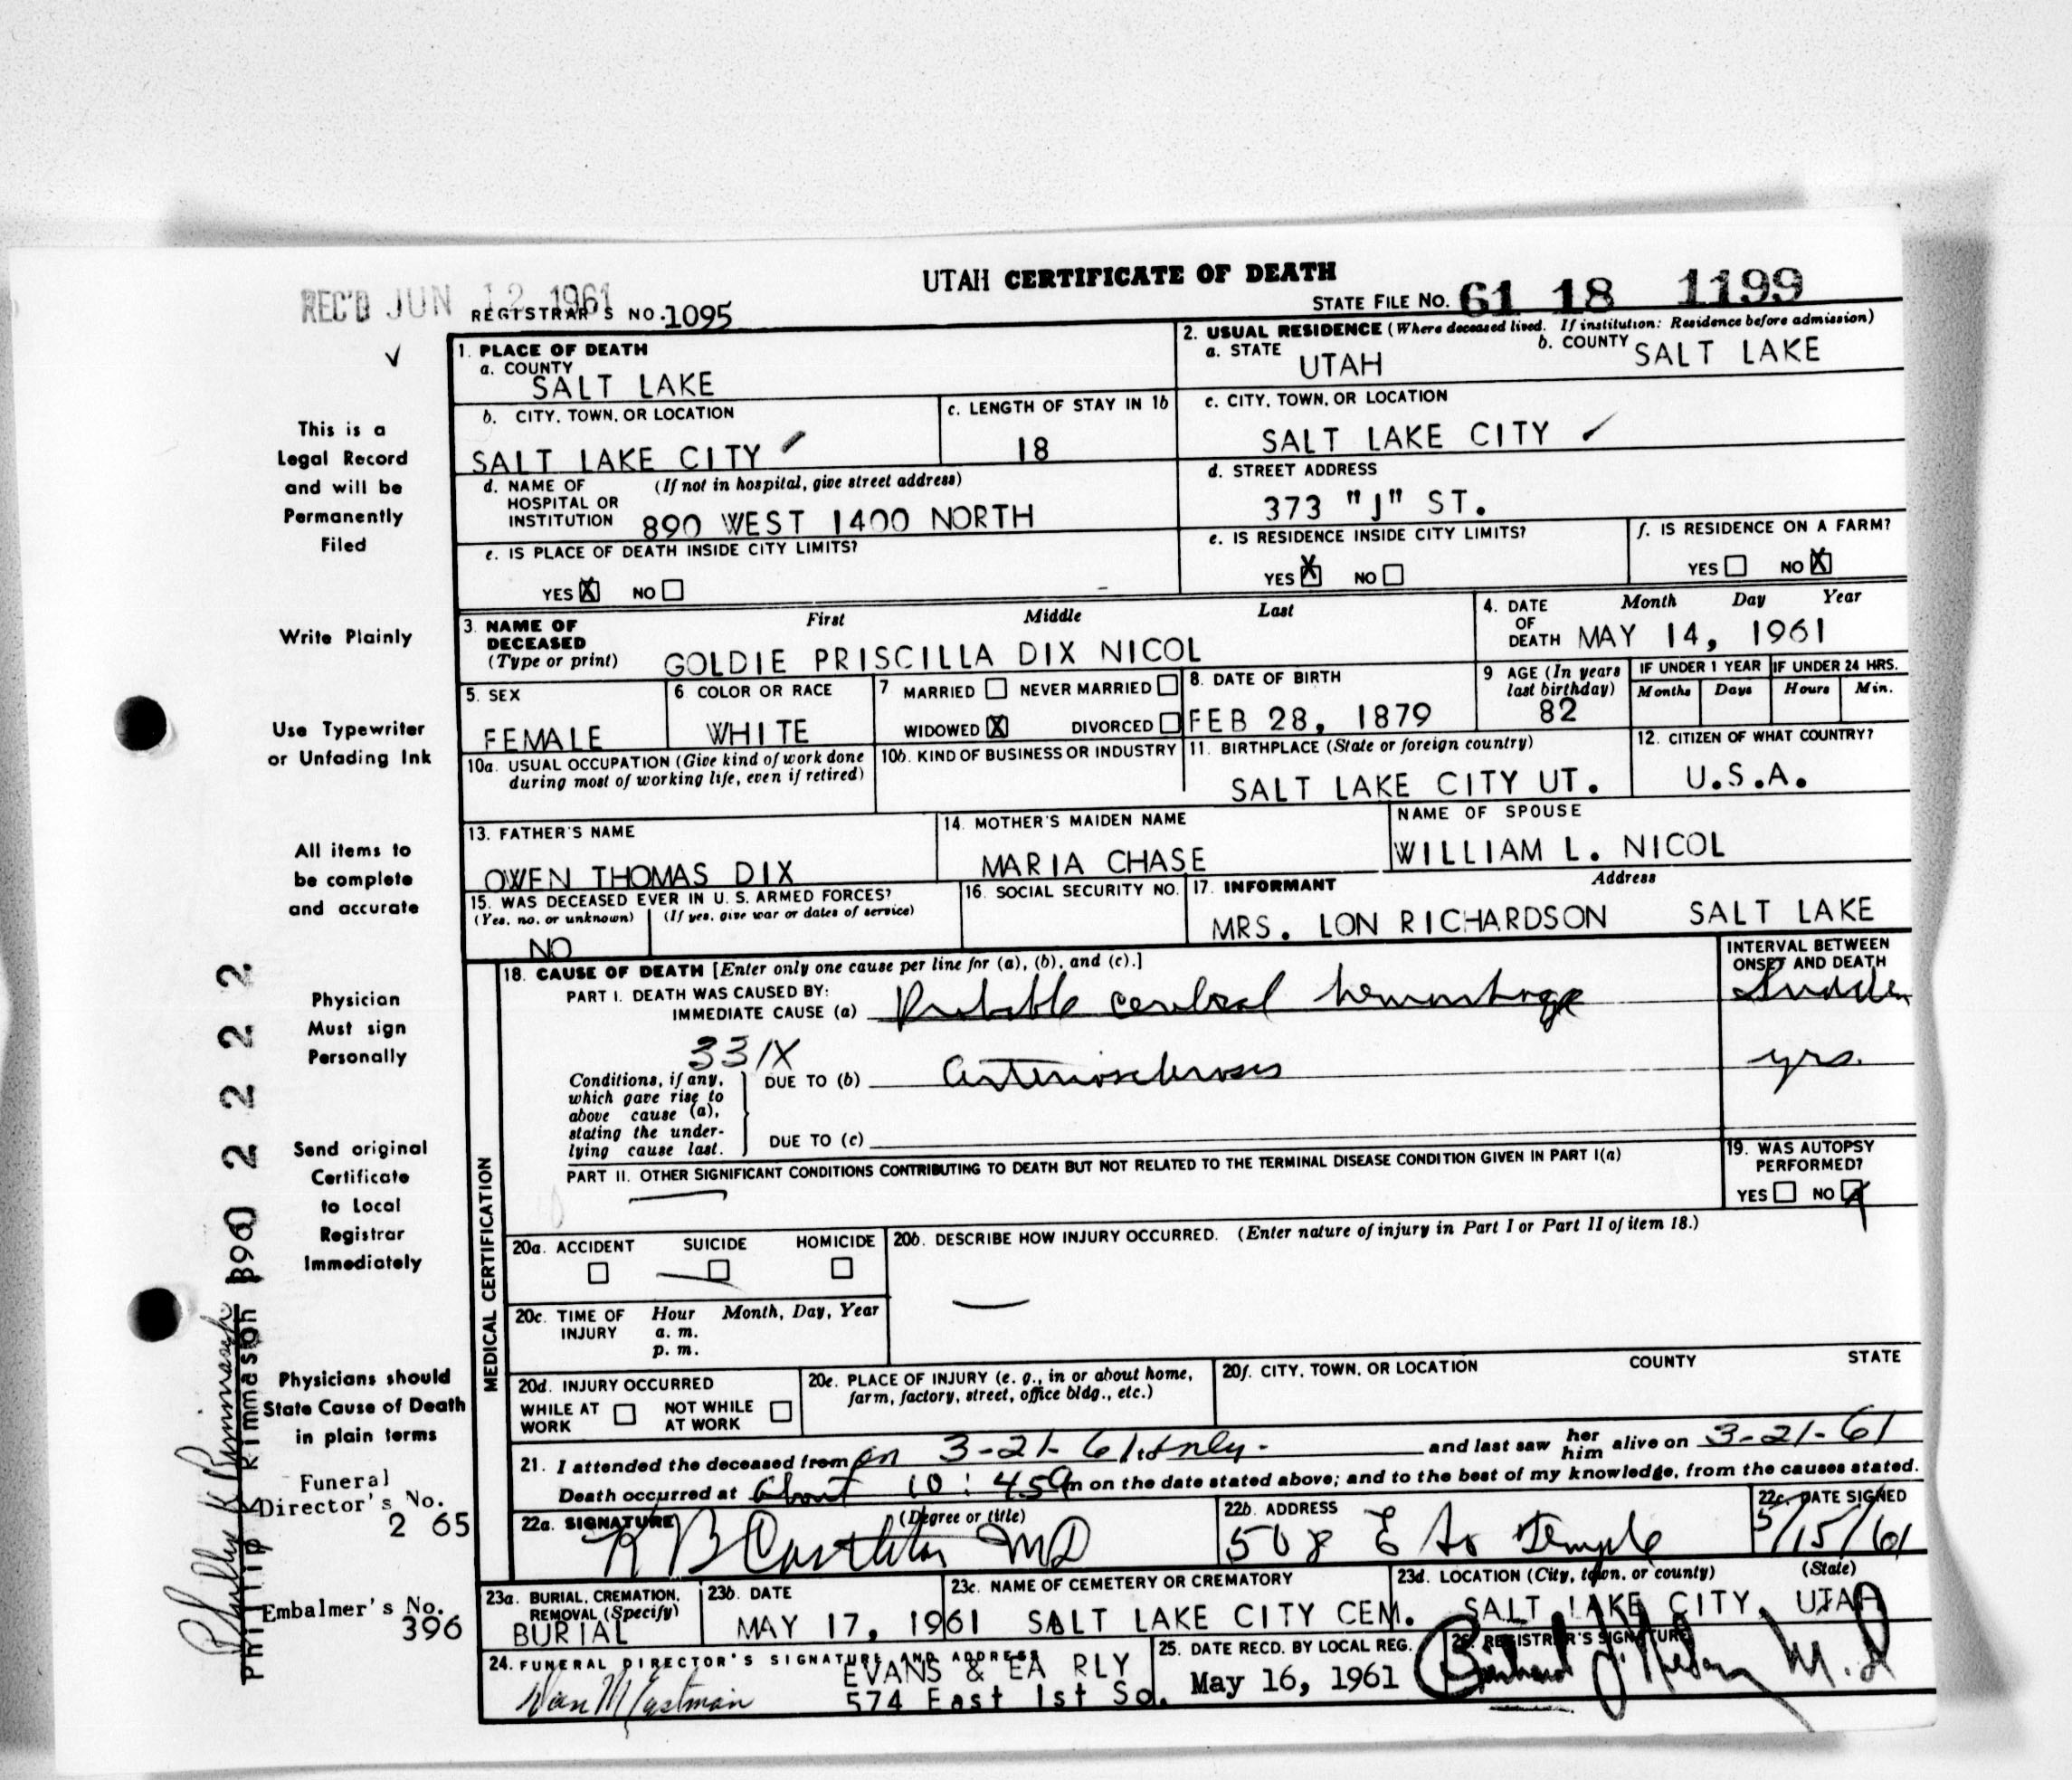 UTAH CERTIFICATE OF DEATH
REC'D JUN 12 1961
REGISTRAR'S NO. 1095
STATE FILE NO. 61 18 1199
1. PLACE OF DEATH
a. COUNTY
SALT LAKE
2. USUAL RESIDENCE (Where deceased lived. If institution: Residence before admission)
a. STATE UTAH
b. COUNTY SALT LAKE
b. CITY, TOWN, OR LOCATION
SALT LAKE CITY
c. LENGTH OF STAY IN 1b
18
c. CITY, TOWN, OR LOCATION
SALT LAKE CITY
d. NAME OF (If not in hospital, give street address)
HOSPITAL OR
INSTITUTION 890 WEST 1400 NORTH
d. STREET ADDRESS
373 "J" ST.
e. IS PLACE OF DEATH INSIDE CITY LIMITS?
YES X NO
e. IS RESIDENCE INSIDE CITY LIMITS?
YES X NO
f. IS RESIDENCE ON A FARM?
YES NO X
3. NAME OF DECEASED (Type or print)
First Middle Last
GOLDIE PRISCILLA DIX NICOL
4. DATE OF DEATH
Month Day Year
MAY 14, 1961
5. SEX
FEMALE
6. COLOR OR RACE
WHITE
7 MARRIED NEVER MARRIED
WIDOWED X DIVORCED
8. DATE OF BIRTH
FEB 28, 1879
9 AGE (In years last birthday)
82
IF UNDER 1 YEAR
Months Days
IF UNDER 24 HRS.
Hours Min.
10a. USUAL OCCUPATION (Give kind of work done
during most of working life, even if retired)
10b. KIND OF BUSINESS OR INDUSTRY
11. BIRTHPLACE (State or foreign country)
SALT LAKE CITY UT.
12. CITIZEN OF WHAT COUNTRY?
U.S.A.
13. FATHER'S NAME
OWEN THOMAS DIX
14. MOTHER'S MAIDEN NAME
MARIA CHASE
NAME OF SPOUSE
WILLIAM L. NICOL
15. WAS DECEASED EVER IN U.S. ARMED FORCES?
(Yes, no, or unknown) (If yes, give war or dates of service)
NO
16. SOCIAL SECURITY NO.
17. INFORMANT Address
MRS. LON RICHARDSON SALT LAKE
MEDICAL CERTIFICATION
18. CAUSE OF DEATH [Enter only one cause per line for (a), (b), and (c).]
INTERVAL BETWEEN
ONSET AND DEATH
PART I. DEATH WAS CAUSED BY:
IMMEDIATE CAUSE (a) Probable cerebral hemorrhage Sudden
331X
Conditions, if any,
which gave rise to
above cause (a),
stating the under-
lying cause last.
DUE TO (b) Arteriosclerosis yrs.
DUE TO (c)
PART II. OTHER SIGNIFICANT CONDITIONS CONTRIBUTING TO DEATH BUT NOT RELATED TO THE TERMINAL DISEASE CONDITION GIVEN IN PART I(a)
19. WAS AUTOPSY
PERFORMED?
YES NO X
20a. ACCIDENT SUICIDE HOMICIDE
20b. DESCRIBE HOW INJURY OCCURRED. (Enter nature of injury in Part I or Part II of item 18.)
20c. TIME OF INJURY
Hour Month, Day, Year
a. m.
p. m.
20d. INJURY OCCURRED
WHILE AT WORK NOT WHILE AT WORK
20e. PLACE OF INJURY (e. g., in or about home,
farm, factory, street, office bldg., etc.)
20f. CITY, TOWN, OR LOCATION COUNTY STATE
21. I attended the deceased from on 3-21-61 only. and last saw her him alive on 3-21-61
Death occurred at About 10:45 a m on the date stated above; and to the best of my knowledge, from the causes stated.
22a. SIGNATURE (Degree or title)
K B Castleton MD
22b. ADDRESS
508 E So Temple
22c. DATE SIGNED
5/15/61
23a. BURIAL, CREMATION,
REMOVAL (Specify)
BURIAL
23b. DATE
MAY 17, 1961
23c. NAME OF CEMETERY OR CREMATORY
SALT LAKE CITY CEM.
23d. LOCATION (City, town, or county) (State)
SALT LAKE CITY, UTAH
24. FUNERAL DIRECTOR'S SIGNATURE AND ADDRESS
EVANS & EA RLY
574 East 1st So.
25. DATE RECD. BY LOCAL REG.
May 16, 1961
26. REGISTRAR'S SIGNATURE
M.D
This is a
Legal Record
and will be
Permanently
Filed
Write Plainly
Use Typewriter
or Unfading Ink
All items to
be complete
and accurate
Physician
Must sign
Personally
Send original
Certificate
to Local
Registrar
Immediately
Physicians should
State Cause of Death
in plain terms
Funeral
Director's No.
2 65
Embalmer's No.
396